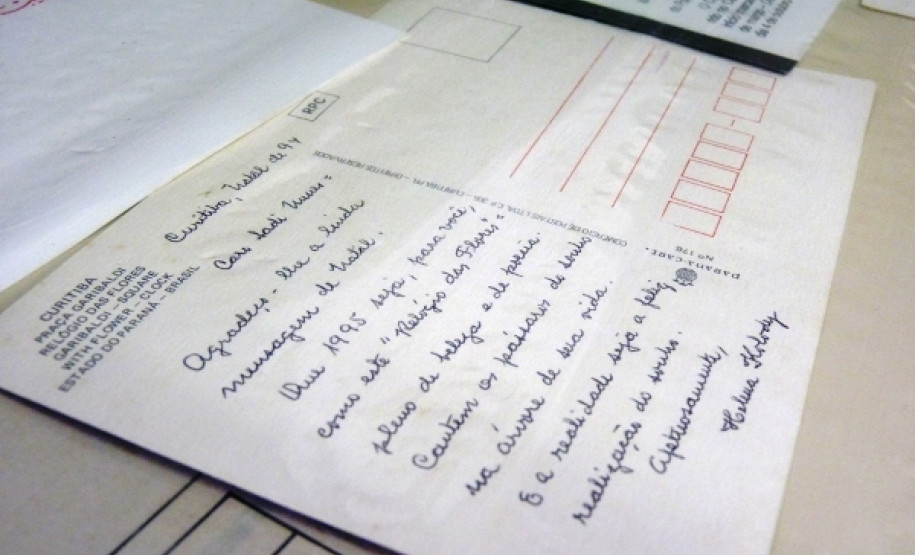 CURITIBA
PRAÇA GARIBALDI
RELÓGIO DAS FLORES
GARIBALDI - SQUARE
WITH FLOWER - CLOCK
ESTADO DO PARANÁ - BRASIL
Curitiba, Natal de 94
Caro
Agradeço-lhe a linda
mensagem de Natal.
Que 1995 seja, para você,
como este "Relógio das Flores"
pleno de beleza e de poesia.
Cantem os pássaros do sonho
na árvore de sua vida.
E a realidade seja a feliz
realização do sonho.
Afetuosamente,
Helena Kolody
RPC
COMÉRCIO DE POSTAIS LTDA. C.P. - CURITIBA PR. - DIREITOS RESERVADOS
PARANÁ-CART
Nº 176